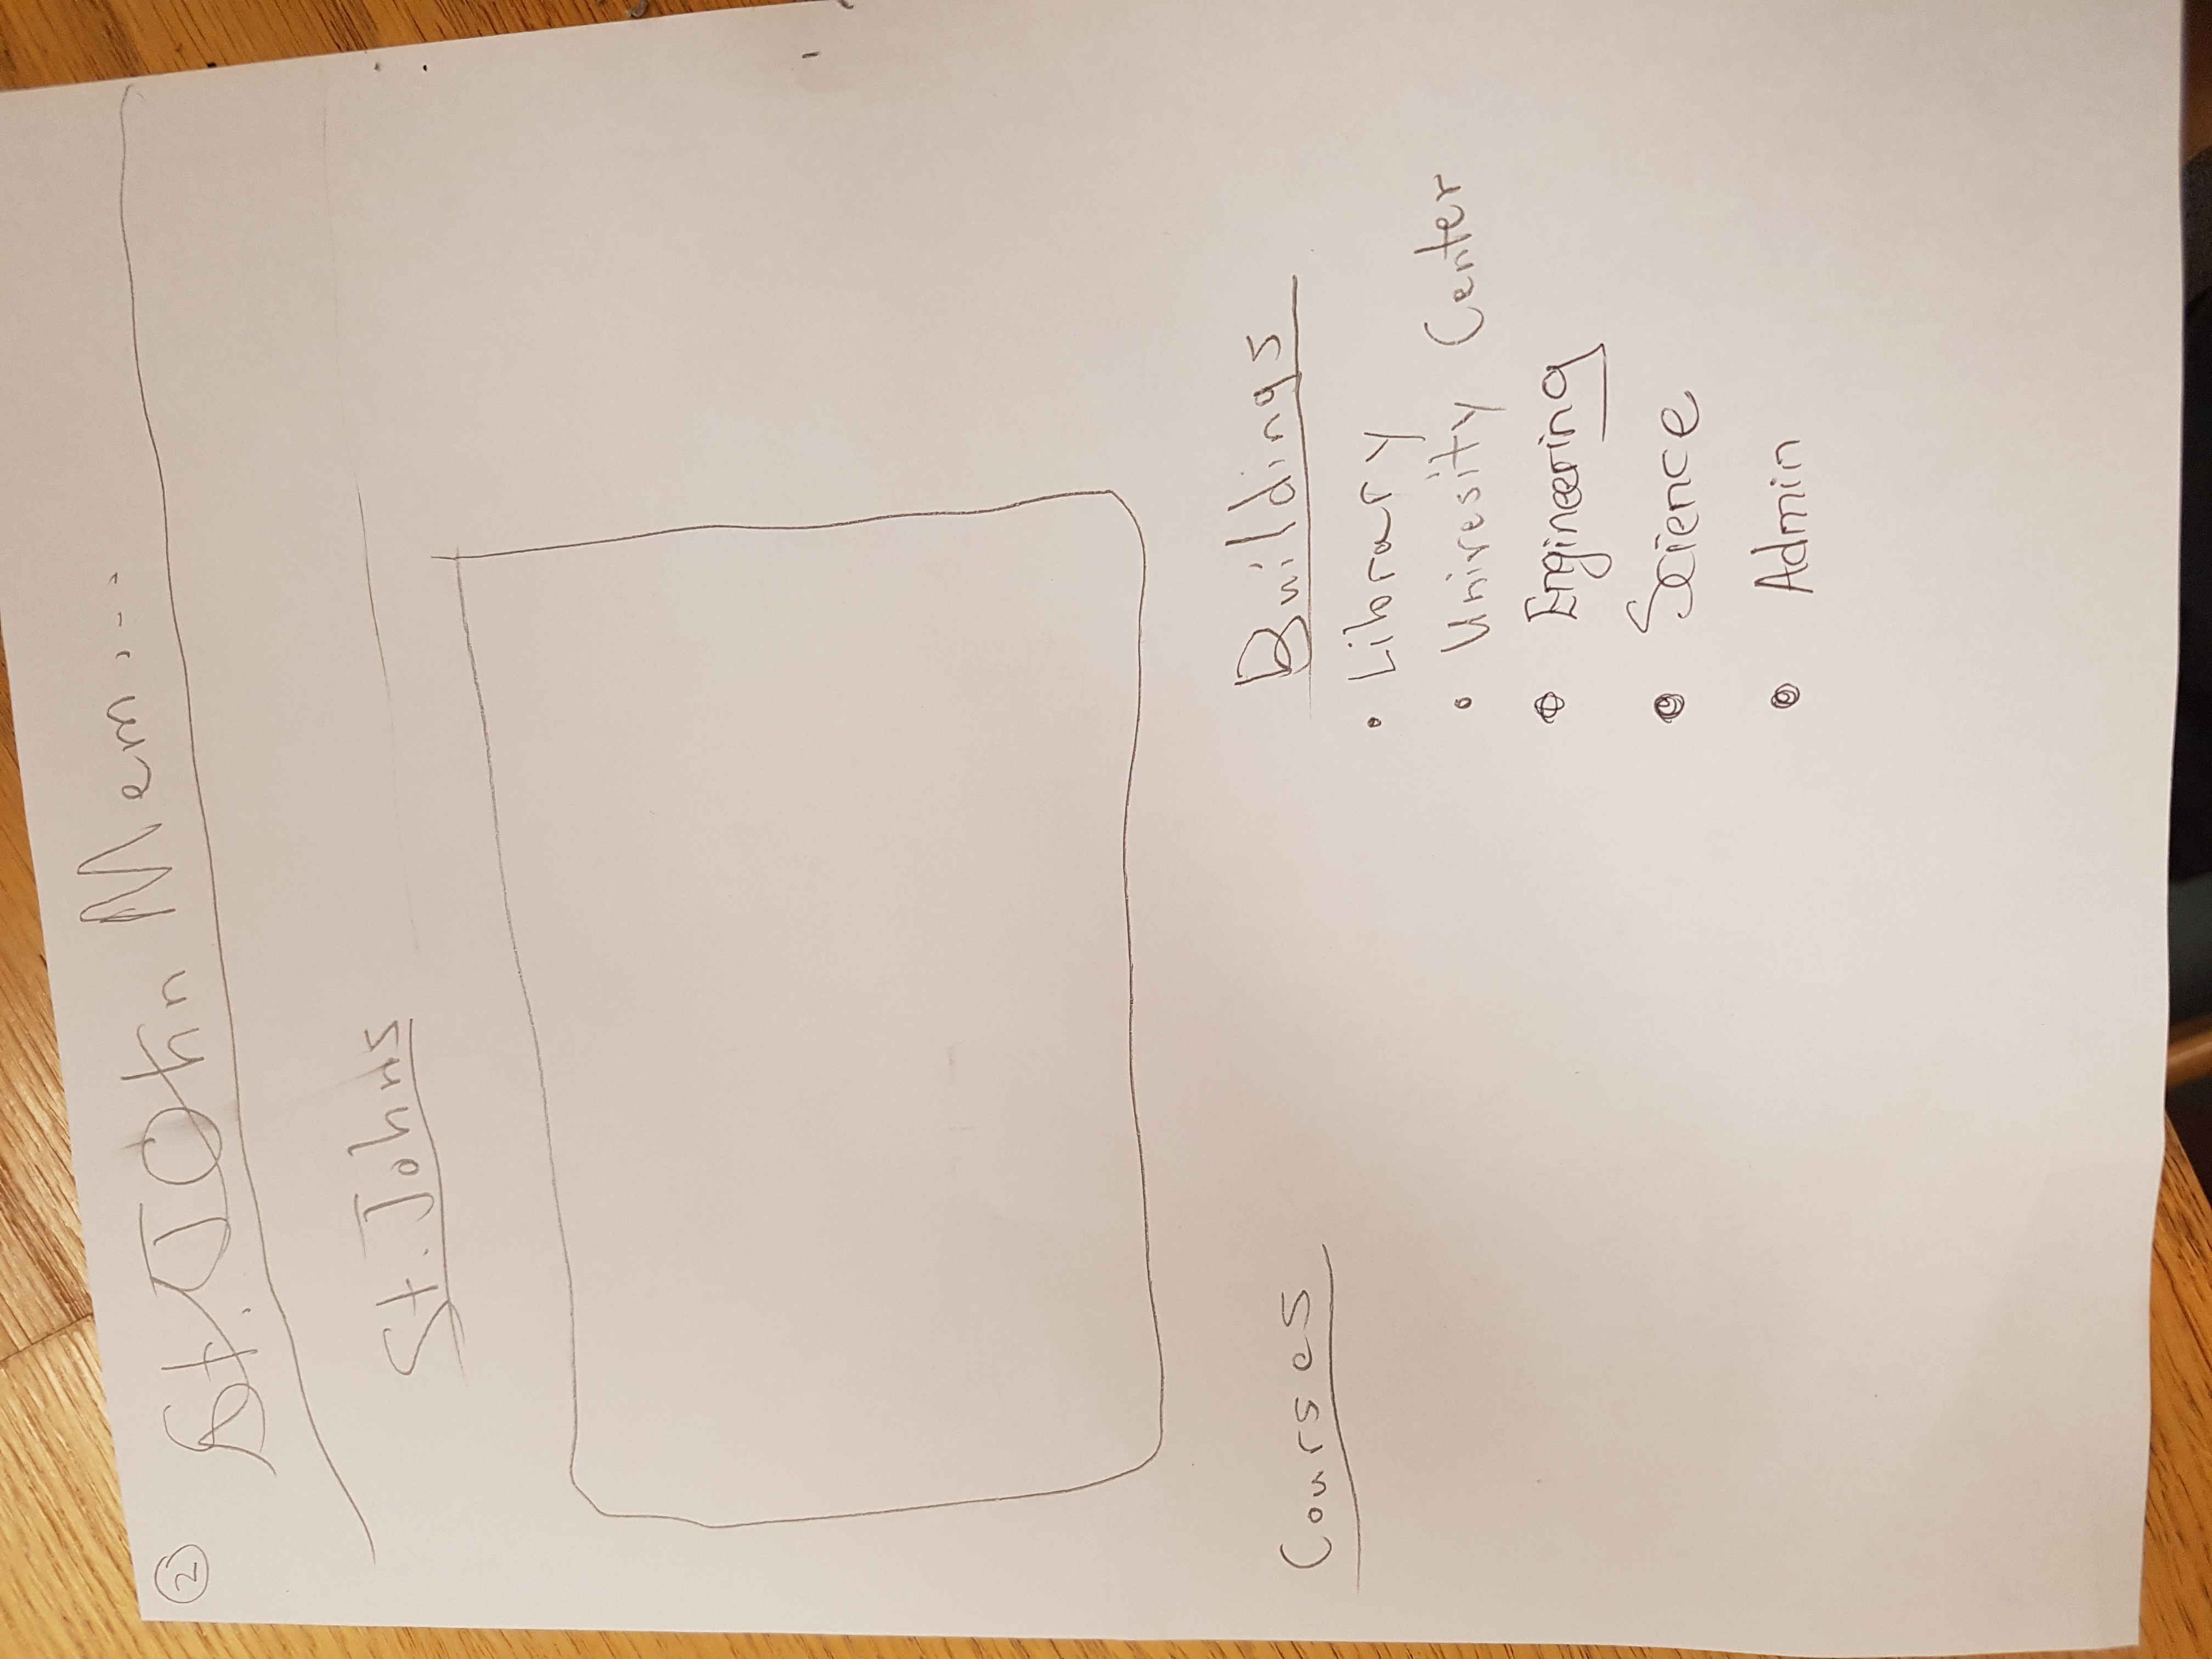 2 St. John Mem...
St. Johns
Courses
Buildings
• Library
• Univesity Center
• Engineering
• Science
• Admin